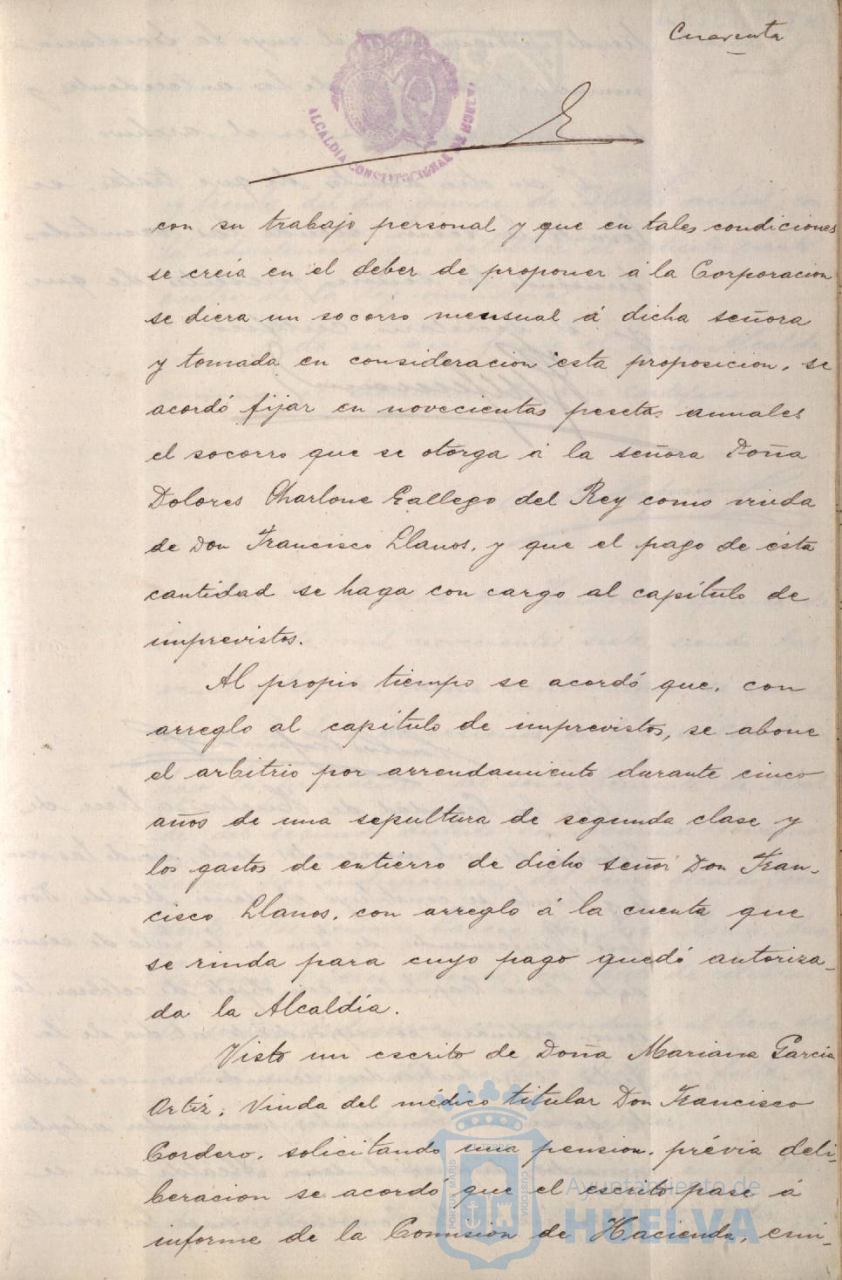 Cuarenta
ALCALDIA CONSTITUCIONAL DE HUELVA
con su trabajo personal y que en tales condiciones
se creia en el deber de proponer á la Corporacion
se diera un socorro mensual á dicha señora
y tomada en consideracion esta proposicion, se
acordó fijar en novecientas pesetas anuales
el socorro que se otorga á la señora Doña
Dolores Charlone Gallego del Rey como viuda
de Don Francisco Llanos, y que el pago de ésta
cantidad se haga con cargo al capítulo de
imprevistos.
Al propio tiempo se acordó que, con
arreglo al capítulo de imprevistos, se abone
el arbitrio por arrendamiento durante cinco
años de una sepultura de segunda clase y
los gastos de entierro de dicho señor Don Fran-
cisco Llanos, con arreglo á la cuenta que
se rinda para cuyo pago quedó autoriza-
da la Alcaldía.
Visto un escrito de Doña Mariana Garcia
Ortiz, Viuda del médico titular Don Francisco
Cordero, solicitando una pension, prévia deli-
beracion se acordó que el escrito pase á
informe de la Comision de Hacienda, emi-
Ayuntamiento de
HUELVA